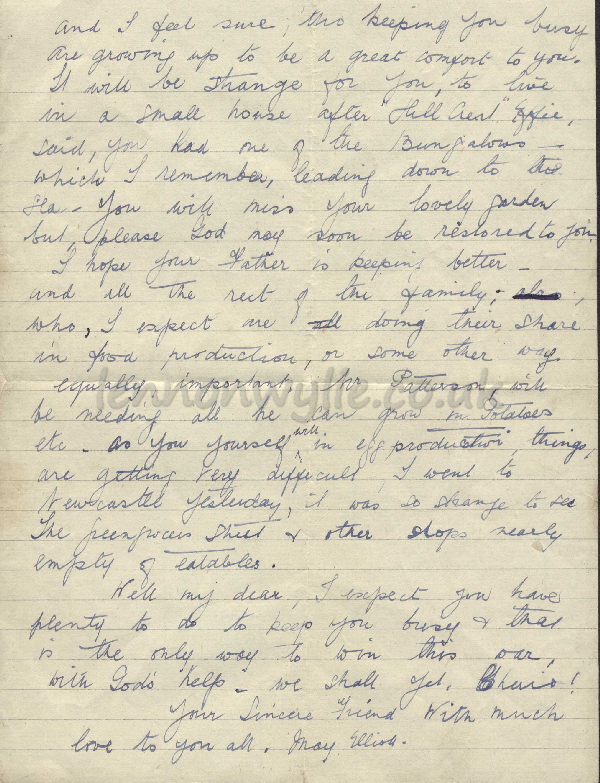 and I feel sure, tho keeping you busy
are growing up to be a great comfort to you.
It will be strange for you, to live
in a small house after "Hill Crest" Effie,
said, you had one of the Bungalows —
which I remember, leading down to the
Sea - You will miss your lovely garden
but, please God may soon be restored to you
I hope your Father is keeping better -
and all the rest of the family,
who, I expect are all doing their share
in food production, or some other way.
equally important, Mr Patterson, will
be needing all he can grow in Potatoes
etc - as you yourself will in egg production, things,
are getting very difficult, I went to
Newcastle yesterday, it was so strange to see
The Greengrocers Street & other shops nearly
empty of eatables.
Well my dear, I expect you have
plenty to do to keep you busy & that
is the only way to win this war,
with God's help - we shall yet. Cheerio!
Your Sincere Friend With much
love to you all. May Elliott.
lennonwylie.co.uk